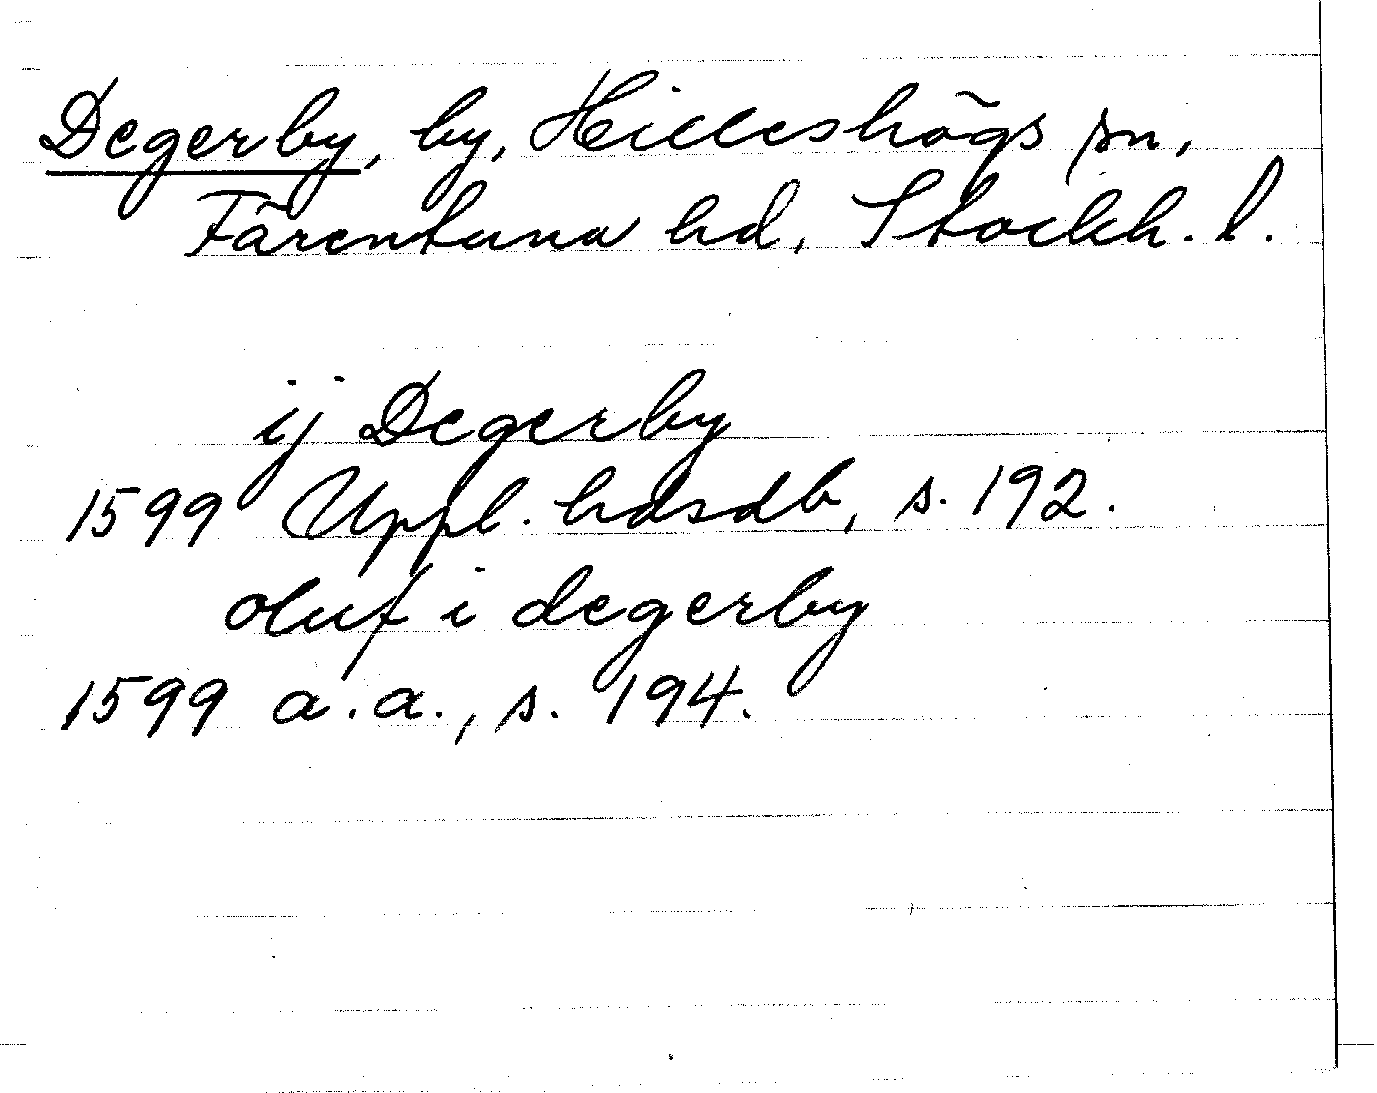 Degerby, by, Hilleshögs sn,
Färentuna hd, Stockh. l.
ij Degerby
1599 Uppl. hdsdb, s. 192.
oluf i degerby
1599 a.a., s. 194.